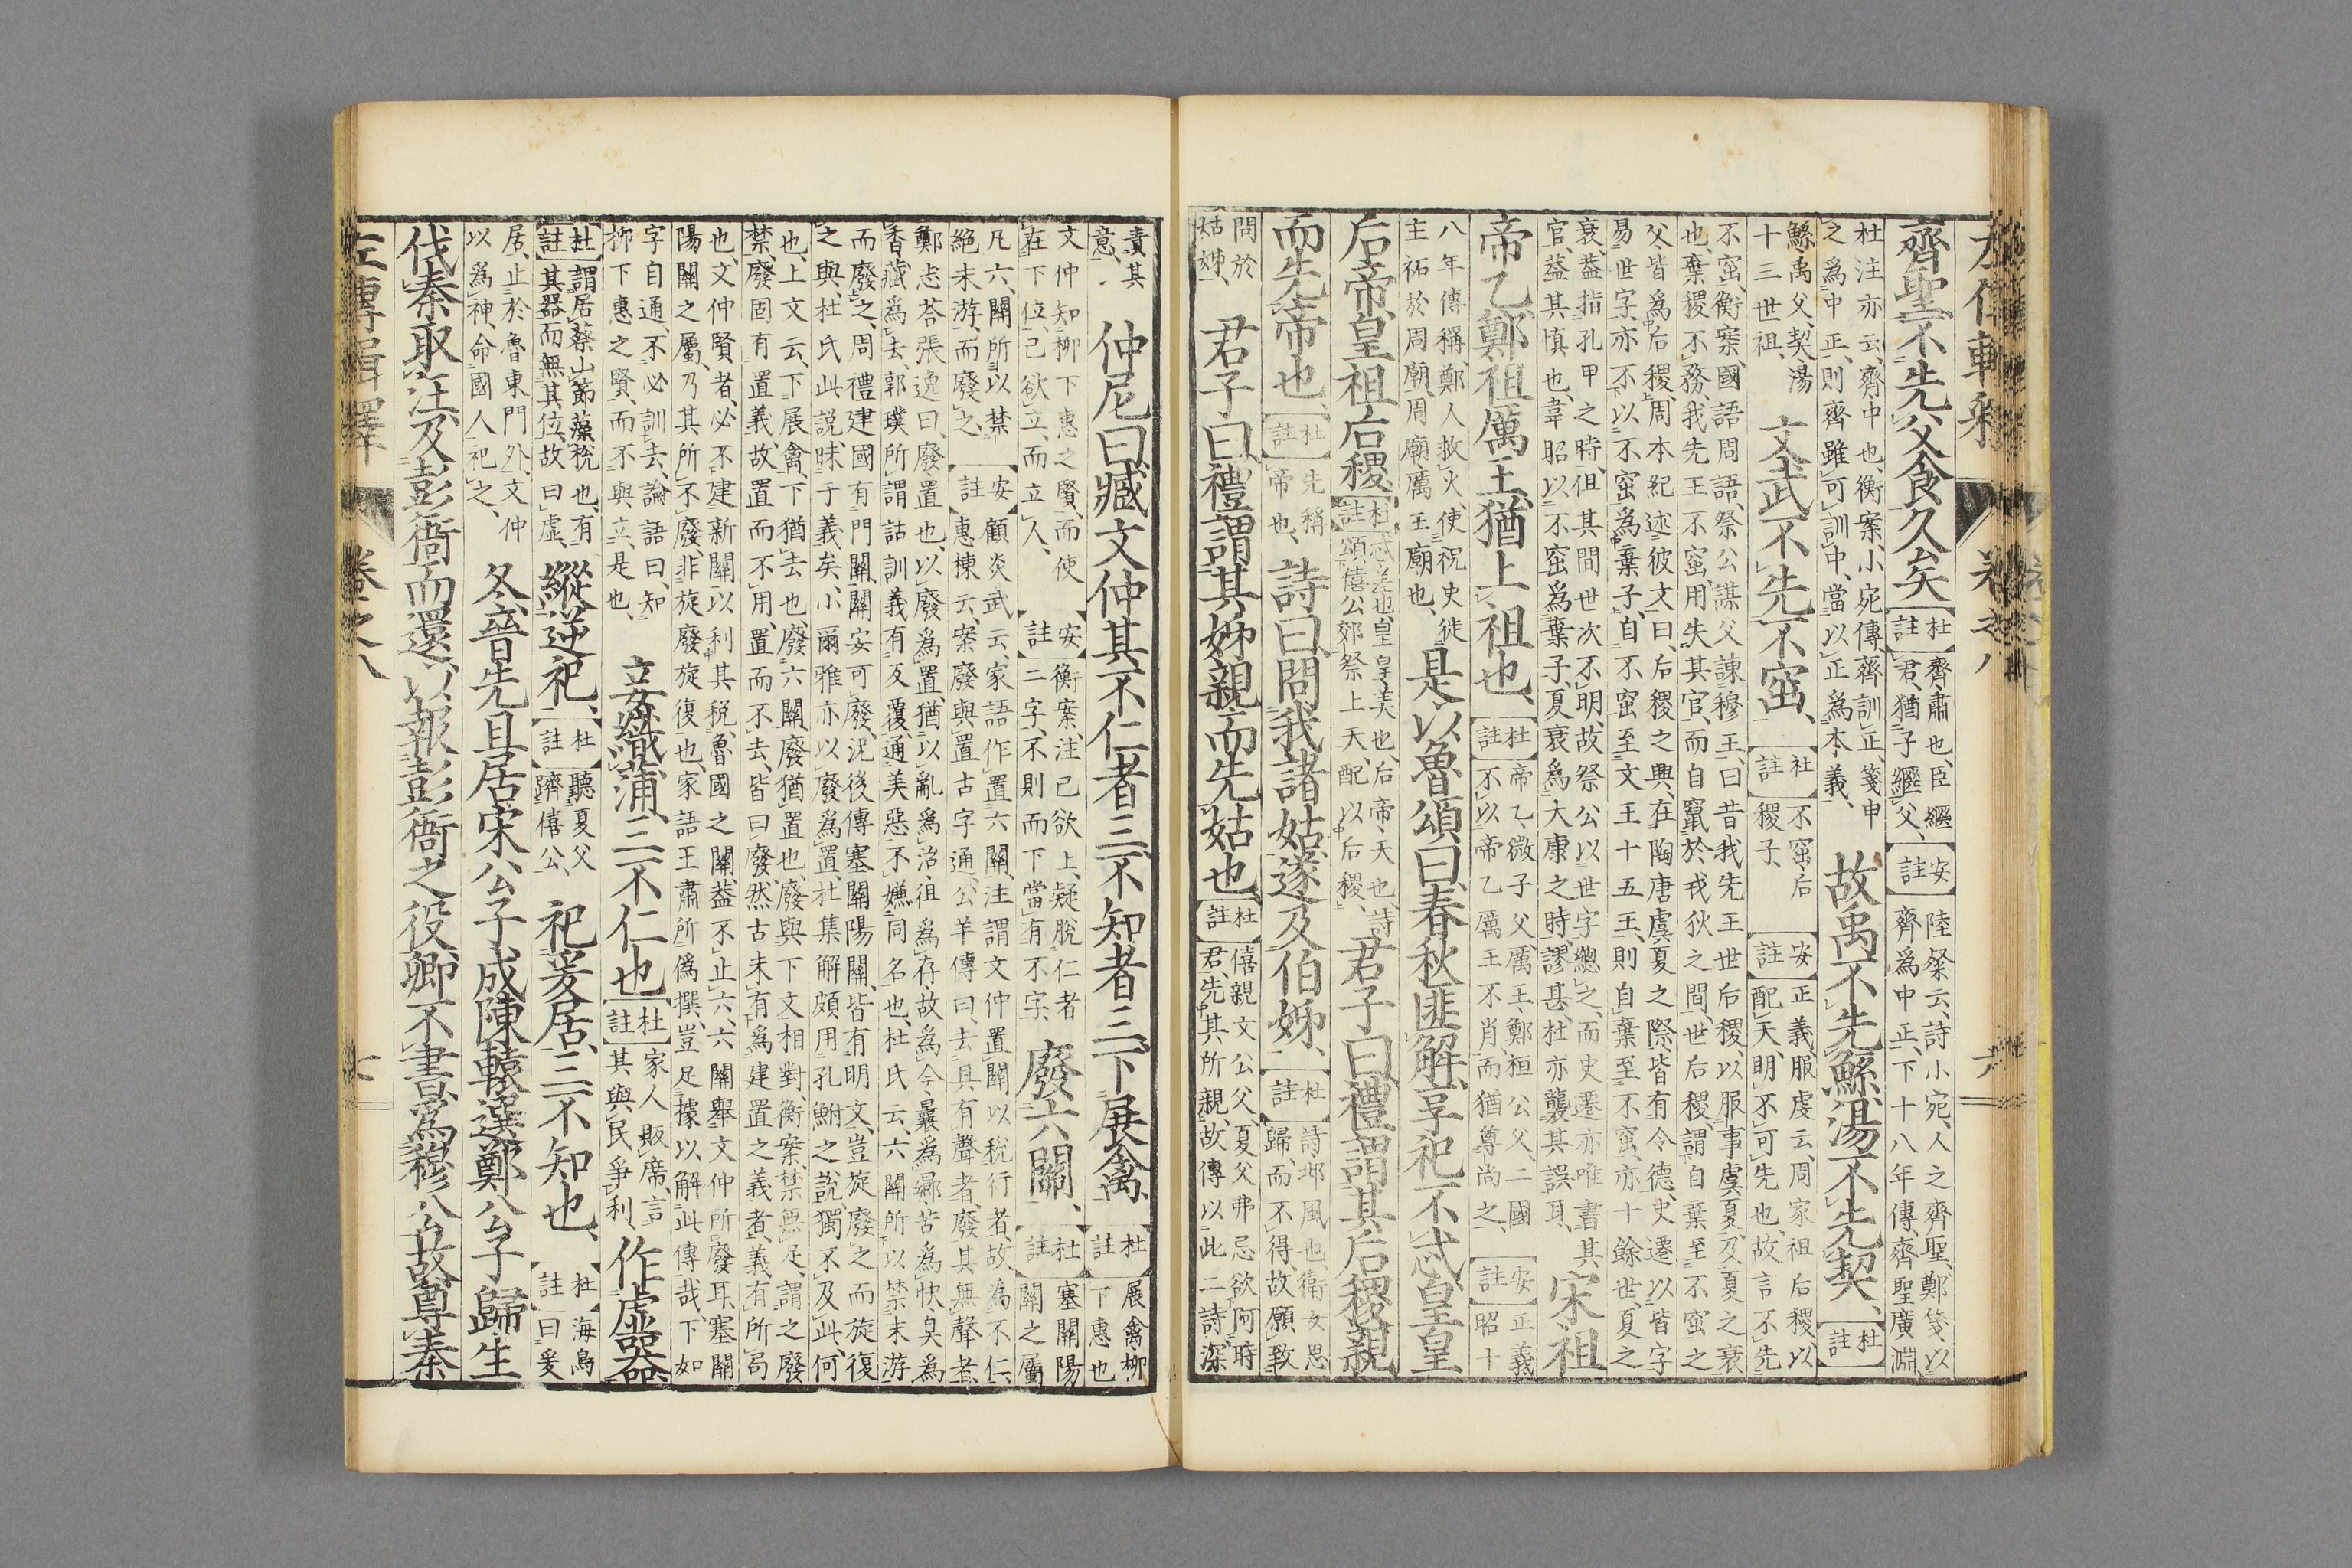 左傳輯釋　卷之八　六
齊聖不先父食久矣
杜註
齊肅也、臣繼
君、猶子繼父、
安註
陸粲云、詩小宛、人之齊聖、鄭箋以
齊為中正、下十八年傳、齊聖廣淵
杜注亦云、齊中也、衡案、小宛傳、齊訓正、箋申
之為中正、則齊雖可訓中、當以正為本義、
故禹不先鯀、湯不先契、
杜註
鯀、禹父、契、湯
十三世祖、
文武不先不窋、
杜註
不窋后
稷子、
安註
正義、服虔云、周家祖后稷以
配天、明不可先也、故言不先
不窋、衡案、國語周語、祭公謀父諫穆王曰、昔我先王世后稷、以服事虞夏、及夏之衰
也、棄稷不務、我先王不窋、用失其官、而自竄於戎狄之間、世后稷、謂自棄至不窋之
父、皆為后稷、周本紀述彼文曰、后稷之興、在陶唐虞夏之際、皆有令德、史遷以皆字
易世字、亦不以不窋為棄子、自不窋至文王十五王、則自棄至不窋、亦十餘世、夏之
衰、蓋指孔甲之時、但其間世次不明、故祭公以世字總之、而史遷亦唯書其
官、蓋其慎也、韋昭以不窋為棄子、夏衰為大康之時、謬甚、杜亦襲其誤耳、
宋祖
帝乙、鄭祖厲王、猶上祖也、
杜註
帝乙、微子父、厲王、鄭桓公父、二國
不以帝乙厲王不肖、而猶尊尚之、
安註
正義
昭十
八年傳稱鄭人救火、使祝史徙
主祏於周廟、周廟厲王廟也、
是以魯頌曰、春秋匪解、享祀不忒、皇皇
后帝、皇祖后稷、
杜註
忒、差也、皇皇、美也、后帝、天也、詩
頌僖公郊祭上天、配以后稷、
君子曰、禮謂其后稷親
而先帝也、
杜註
先稱
帝也、
詩曰、問我諸姑、遂及伯姊、
杜註
詩邶風也、衛女思
歸而不得、故願致
問於
姑姊、
君子曰、禮謂其姊親而先姑也、
杜註
僖親文公父、夏父弗忌欲阿時
君、先其所親、故傳以此二詩、深
責其
意、
仲尼曰、臧文仲其不仁者三、不知者三、下展禽、
杜註
展禽柳
下惠也
文仲知柳下惠之賢、而使
在下位、己欲立而立人、
安註
衡案、注己欲上、疑脫仁者
二字、不則而下當有不字、
廢六關、
杜註
塞關陽
關之屬
凡六關、所以禁
絕末游、而廢之、
安註
顧炎武云、家語作置六關、注謂文仲置關以稅行者、故為不仁、
惠棟云、案廢與置古字通、公羊傳曰、去其有聲者、廢其無聲者、
鄭志荅張逸曰、廢、置也、以廢為置、猶以亂為治、徂為存、故為今、曩為曏、苦為快、臭為
香、藏為去、郭璞所謂詁訓義有反覆通、美惡不嫌同名也、杜氏云、六關所以禁末游
而廢之、周禮建國有門關、關安可廢、況後傳塞關陽關、皆有明文、豈旋廢之而旋復
之與、杜氏此說、昧于義矣、小爾雅亦以廢為置、杜集解頗用孔鮒之說、獨不及此、何
也、上文云、下展禽、下猶去也、廢六關、廢猶置也、廢與下文相對、衡案、禁無足、謂之廢
禁、廢固有置義、故置而不用、置而不去、皆曰廢、然古未有為建置之義者、義有所局
也、文仲賢者、必不建新關以利其稅、魯國之關、蓋不止六、六關舉文仲所廢耳、塞關
陽關之屬、乃其所不廢、非旋廢旋復也、家語王肅所偽撰、豈足據以解此傳哉、下如
字自通、不必訓去、論語曰、知
柳下惠之賢、而不與立、是也、
妾織蒲、三不仁也、
杜註
家人販席、言
其與民爭利、
作虛器、
杜註
謂居蔡山節藻梲也、有
其器而無其位、故曰虛、
縱逆祀、
杜註
聽夏父
躋僖公、
祀爰居、三不知也、
杜註
海鳥
曰爰
居、止於魯東門外、文仲
以為神、命國人祀之、
冬、晉先且居宋公子成陳轅選鄭公子歸生
伐秦、取汪、及彭衙而還、以報彭衙之役、卿不書、為穆公故、尊秦
左傳輯釋　卷之八　七